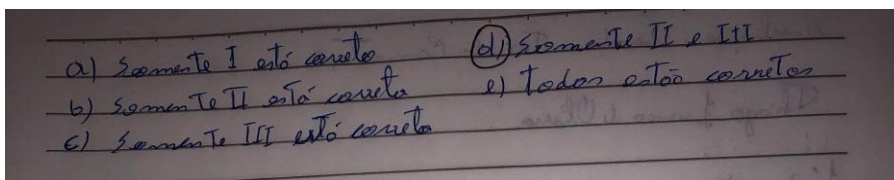 a) Somente I está correto
b) Somente II está correta
c) Somente III está correta
d) Somente II e III
e) Todos estão corretos